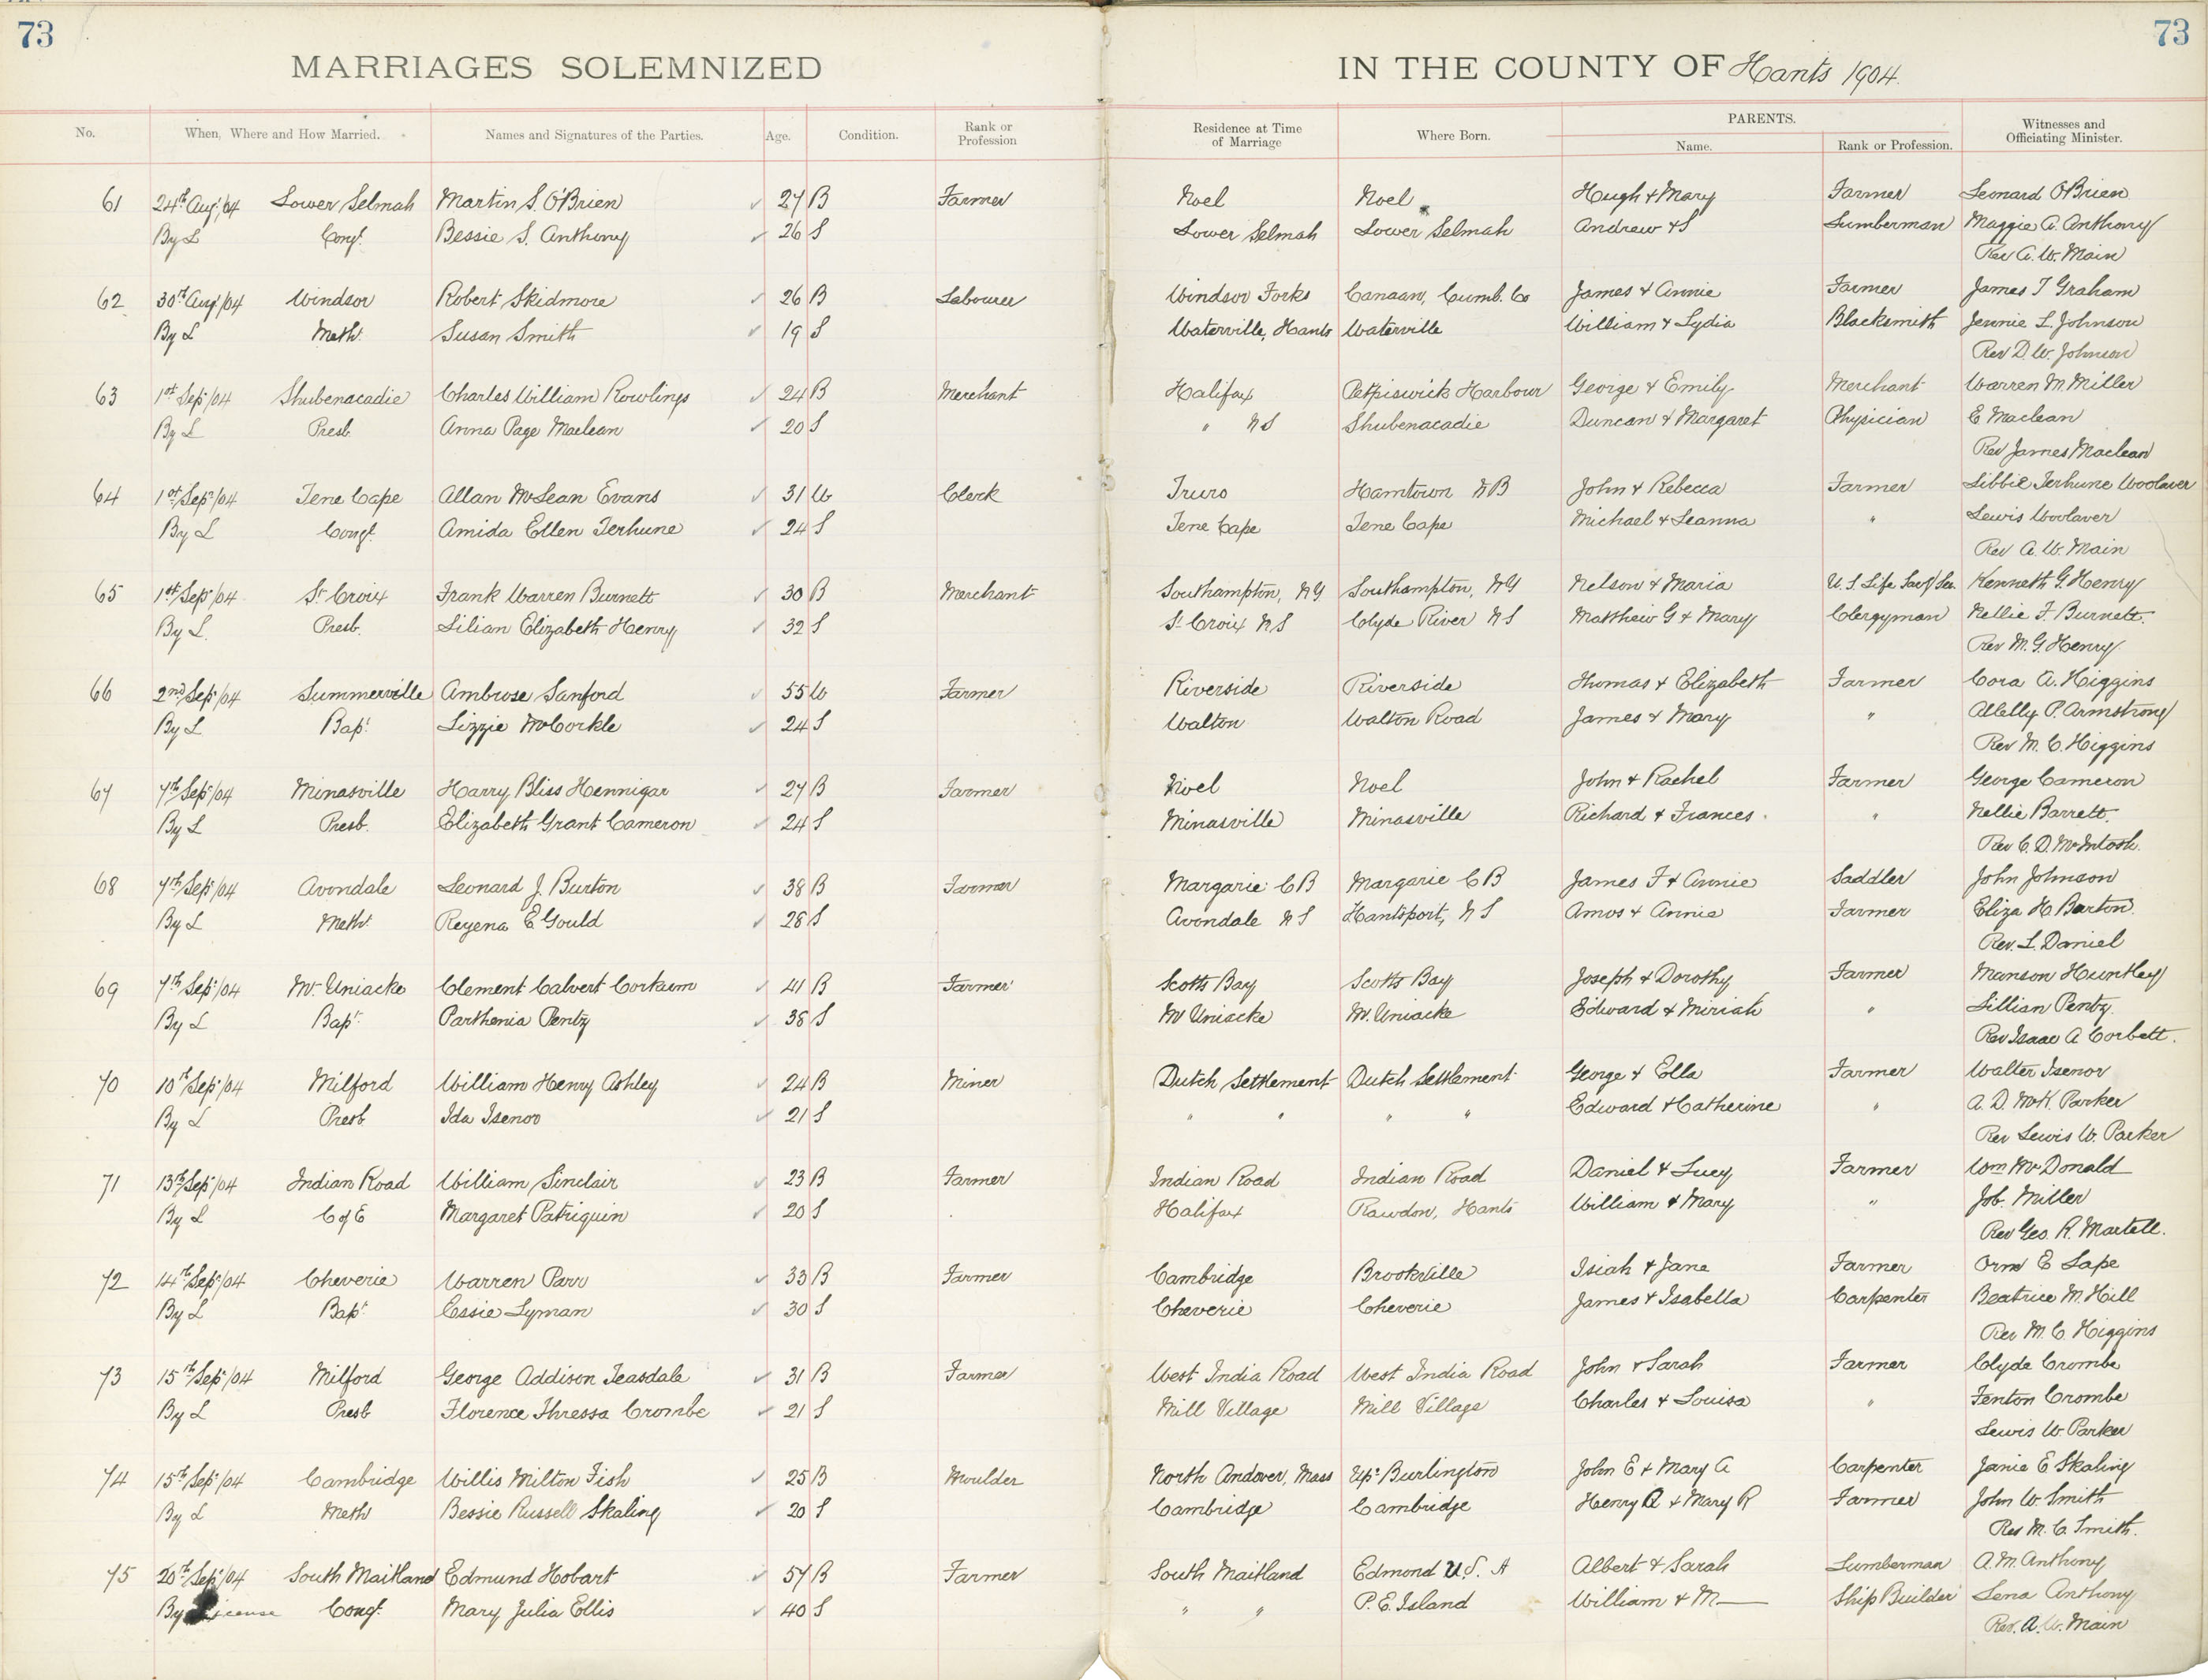 73
73
MARRIAGES SOLEMNIZED
IN THE COUNTY OF Hants 1904.
No. When, Where and How Married. Names and Signatures of the Parties. Age. Condition. Rank or Profession Residence at Time of Marriage Where Born. PARENTS. Name. Rank or Profession. Witnesses and Officiating Minister.
61 24th Aug/04 Lower Selmah Martin S. O'Brien 27 B Farmer Noel Noel Hugh & Mary Farmer Leonard O'Brien
By L Congl. Bessie S. Anthony 26 S Lower Selmah Lower Selmah Andrew & S Lumberman Maggie A. Anthony
Rev A. W. Main
62 30th Aug/04 Windsor Robert Skidmore 26 B Labourer Windsor Forks Canaan, Cumb. Co James & Annie Farmer James T Graham
By L Meth. Susan Smith 19 S Waterville, Hants Waterville William & Lydia Blacksmith Jennie L. Johnson
Rev D. W. Johnson
63 1st Sep/04 Shubenacadie Charles William Rowlings 24 B Merchant Halifax Petpiswick Harbour George & Emily Merchant Warren M Miller
By L Presb. Anna Page Maclean 20 S " NS Shubenacadie Duncan & Margaret Physician E Maclean
Rev James Maclean
64 1st Sep/04 Tene Cape Allan McLean Evans 31 W Clerk Truro Hamtown NB John & Rebecca Farmer Libbie Terhune Woolaver
By L Congl. Amida Ellen Terhune 24 S Tene Cape Tene Cape Michael & Leanna " Lewis Woolaver
Rev A. W. Main
65 1st Sep/04 St Croix Frank Warren Burnett 30 B Merchant Southampton, NY Southampton, NY Nelson & Maria U.S Life Sav/ Kenneth G. Henry
By L. Presb. Lilian Elizabeth Henry 32 S St Croix NS Clyde River NS Matthew G & Mary Clergyman Nellie F. Burnett.
Rev M. G. Henry
66 2nd Sep/04 Summerville Ambrose Sanford 55 W Farmer Riverside Riverside Thomas & Elizabeth Farmer Cora A. Higgins
By L Bapt. Lizzie McCorkle 24 S Walton Walton Road James & Mary " P. Armstrong
Rev M. C. Higgins
67 7th Sep/04 Minasville Harry Bliss Hennigar 27 B Farmer Noel Noel John & Rachel Farmer George Cameron
By L Presb. Elizabeth Grant Cameron 24 S Minasville Minasville Richard & Frances " Nellie Barrett.
Rev C. D. McIntosh.
68 7th Sep/04 Avondale Leonard J. Burton 38 B Farmer Margarie CB Margarie CB James F & Annie Saddler John Johnson
By L Meth. Reyena E Gould 28 S Avondale NS Hantsport, NS Amos & Annie Farmer Eliza H Burton.
Rev. L. Daniel
69 7th Sep/04 Mt Uniacke Clement Calvert Corkum 41 B Farmer Scotts Bay Scotts Bay Joseph & Dorothy Farmer Manson Huntley
By L Bapt. Parthenia Pentz 38 S Mt Uniacke Mt. Uniacke Edward & Miriah " Lillian Pentz.
Rev Isaac A Corbett.
70 10th Sep/04 Milford William Henry Ashley 24 B Miner Dutch Settlement Dutch Settlement George & Ella Farmer Walter Isenor
By L Presb Ida Isenor 21 S " " " " Edward & Catherine " A. D. McK. Parker
Rev Lewis W. Parker
71 13th Sep/04 Indian Road William Sinclair 23 B Farmer Indian Road Indian Road Daniel & Lucy Farmer Wm McDonald
By L C of E Margaret Patriquin 20 S Halifax Rawdon, Hants William & Mary " Job. Miller
Rev Geo. R. Martell.
72 14th Sep/04 Cheverie Warren Parr 33 B Farmer Cambridge Brookville Isiah & Jane Farmer Orm E Lape
By L Bapt Essie Lyman 30 S Cheverie Cheverie James & Isabella Carpenter Beatrice M. Hill
Rev M. C. Higgins
73 15th Sep/04 Milford George Addison Teasdale 31 B Farmer West India Road West India Road John & Sarah Farmer Clyde Crombe
By L Presb Florence Thressa Crombe 21 S Mill Village Mill Village Charles & Louisa " Fenton Crombe
Lewis W Parker
74 15th Sep/04 Cambridge Willis Milton Fish 25 B Moulder North Andover, Mass Upr Burlington John E & Mary A Carpenter Janie E Skaling
By L Meth Bessie Russell Skaling 20 S Cambridge Cambridge Henry A & Mary R Farmer John W. Smith
Rev M. C. Smith.
75 20th Sep/04 South Maitland Edmund Hobart 57 B Farmer South Maitland Edmond U.S. A Albert & Sarah Lumberman A. M. Anthony
By License Congl. Mary Julia Ellis 40 S " " P. E. Island William & M— Ship Builder Lena Anthony
Rev. A. W. Main